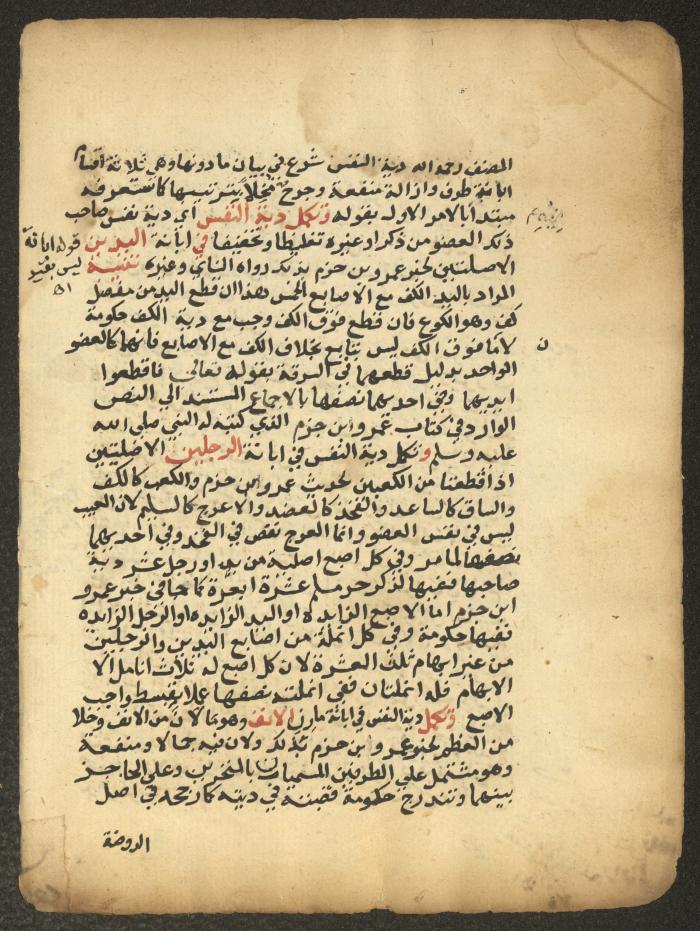 المصنف رحمه الله دية النفس شرع في بيان ما دونها وهي ثلاثة اقسام
ابانة طرف وازالة منفعة وجرح مخلا بترتيبها كما ستعرفه
مبتدئا بالامر الاول بقوله وتكمل دية النفس اي دية نفس صاحب
ذلك العضو من ذكر او غيره تغليظا وتخفيفا في ابانة اليدين
الاصليتين لخبر عمرو بن حزم بذلك رواه النساي وغيره تنبيه
المراد باليد الكف مع الاصابع الخمس هذا ان قطع اليد من مفصل
كف وهو الكوع فان قطع فوق الكف وجب مع دية الكف حكومة
لان ما فوق الكف ليس بتابع بخلاف الكف مع الاصابع فانهما كالعضو
الواحد بدليل قطعهما في السرقة بقوله تعالى فاقطعوا
ايديهما وفي احديهما نصفها بالاجماع المستند الي النص
الوارد في كتاب عمرو ابن حزم الذي كتبه له النبي صلى الله
عليه وسلم وتكمل دية النفس في ابانة الرجلين الاصليتين
اذا قطعتا من الكعبين لحديث عمرو ابن حزم والكعب كالكف
والساق كالساعد والفخذ كالعضد والاعرج كالسليم لان العيب
ليس في نفس العضو وانما العرج نقص في الفخذ وفي احديهما
نصفها لما مر وفي كل اصبع اصلية من يد او رجل عشر دية
صاحبها ففيها لذكر حر مسلم عشرة ابعرة كما جا في خبر عمرو
ابن حزم اما الاصبع الزايدة او اليد الزايده او الرجل الزايده
ففيها حكومة وفي كل انملة من اصابع اليدين والرجلين
من غير ابهام ثلث العشرة لان كل اصبع له ثلاث انامل الا
الابهام فله انملتان ففي انملته نصفها عملا بقسط واجب
الاصبع وتكمل دية النفس في ابانة مارن الانف وهو ما لان من الانف وخلا
من العظم لخبر عمرو ابن حزم بذلك ولان فيه جمالا ومنفعة
وهو مشتمل علي الطرفين المسميان بالمنخرين وعلي الحاجز
بينهما وتندرج حكومة قصبته في ديته كما رجحه في اصل
الروضة
قوله ابانة
ليس بقيد
اه